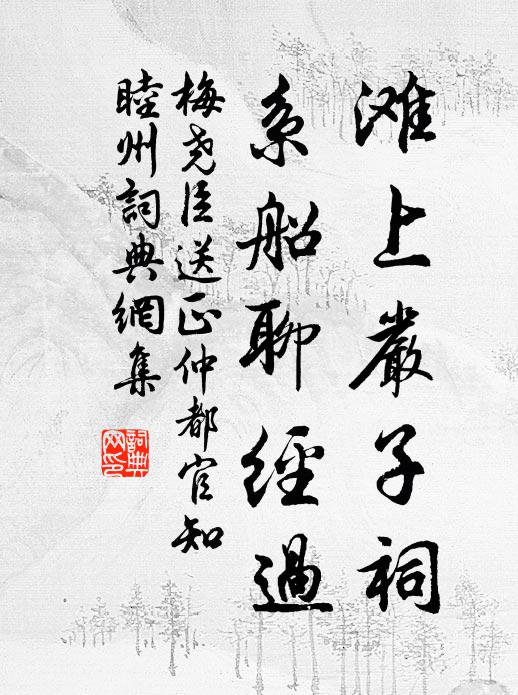 滩上嚴子祠
系船聊經過
梅尧臣送正仲都官知
睦州詞典網集
詞典网印